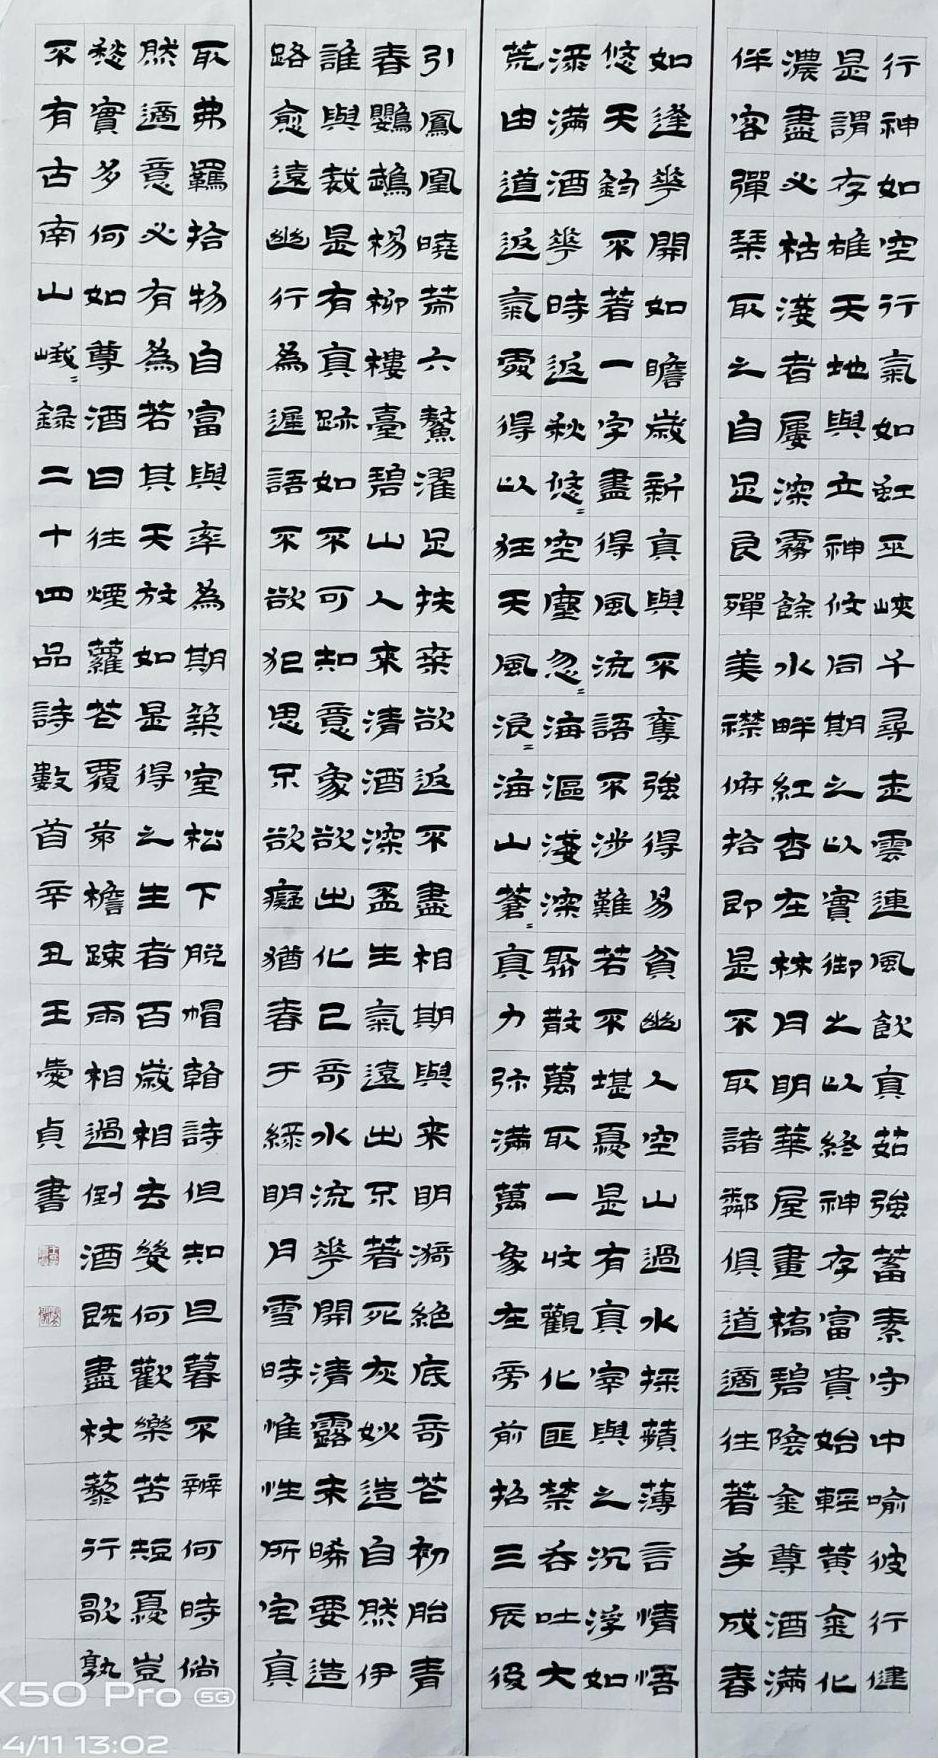 行神如空行氣如虹巫峽千尋走雲連風飲真茹強蓄素守中喻彼行健
是謂存雄天地與立神攸同期之以實御之以終神存富貴始輕黃金化
濃盡必枯淺者屢深霧餘水畔紅杏在林月明華屋畫橋碧陰金尊酒滿
伴客彈琴取之自足良殫美襟俯拾即是不取諸鄰俱道適往著手成春
如逢華開如瞻歲新真與不奪強得易貧幽人空山過水採蘋薄言情悟
悠天鈞不著一字盡得風流語不涉難若不堪憂是有真宰與之沉浮如
添滿酒華時返秋悠〻空塵忽〻海漚淺深聚散萬取一收觀化匪禁吞吐大
荒由道返氣處得以狂天風浪〻海山蒼〻真力弥滿萬象在旁前招三辰後
引鳳凰曉策六鰲濯足扶桒欲返不盡相期與来明漪絕底奇花初胎青
春鸚鵡楊柳樓臺碧山人来清酒深盃生氣遠出不著死灰妙造自然伊
誰與裁是有真跡如不可知意象欲出化已奇水流華開清露未晞要造
路愈遠幽行為遲語不欲犯思不欲癡猶春于綠明月雪時惟性所宅真
取弗羈拾物自富與率為期築室松下脫帽看詩但知旦暮不辨何時倘
然適意必有為若其天放如是得之生者百歲相去幾何歡樂苦短憂豈
愁實多何如尊酒日往煙蘿花覆茆檐疎雨相過倒酒既盡杖藜行歌孰
不有古南山峨〻錄二十四品詩數首辛丑王愛貞書
K50 Pro 5G
4/11 13:02